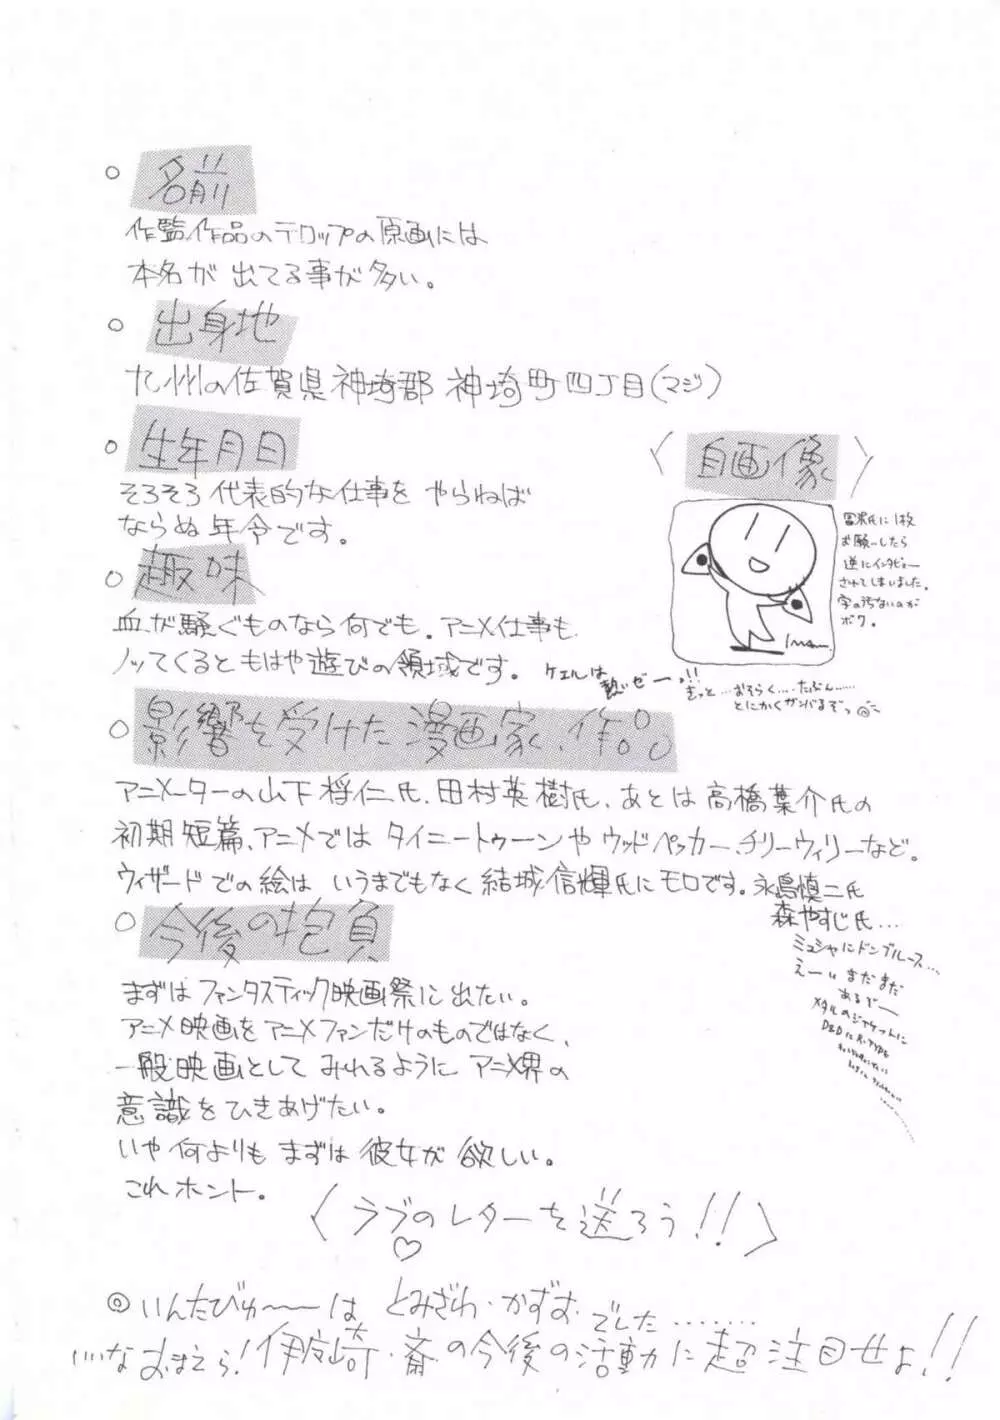 ○ 名前
作監作品のテロップの原画には
本名が出てる事が多い。
○ 出身地
九州の佐賀県神埼郡神埼町四丁目(マジ)
○ 生年月日
そろそろ代表的な仕事をやらねば
ならぬ年令です。
○ 趣味
血が騒ぐものなら何でも。アニメ仕事も
ノッてくるともはや遊びの領域です。
〈自画像〉
冨沢氏に1枚
お願いしたら
逆にインタビュー
されてしまいました。
字の汚ないのが
ボク。
ケェルは
熱いぜーっ!!
きっと…おそらく…たぶん……
とにかくガンバるぞっ
○ 影響を受けた漫画家、作品
アニメーターの山下将仁氏、田村英樹氏、あとは高橋葉介氏の
初期短篇、アニメではタイニートゥーンやウッドペッカー、チリーウィリーなど。
ウィザードでの絵はいうまでもなく結城信輝氏にモロです。永島慎二氏
森やすじ氏…
ミュシャにドンブルース…
えーいまだまだ
あるぞー
メタルのジャケットに
○ 今後の抱負
まずはファンタスティック映画祭に出たい。
アニメ映画をアニメファンだけのものではなく、
一般映画としてみれるようにアニメ界の
意識をひきあげたい。
いや何よりもまずは彼女が欲しい。
これホント。
〈ラブのレターを送ろう!!〉
◎いんたびゅ〜〜〜はとみざわ・かずおでした………
いいなおまえら!伊座崎・斎の今後の活動に超注目せよ!!